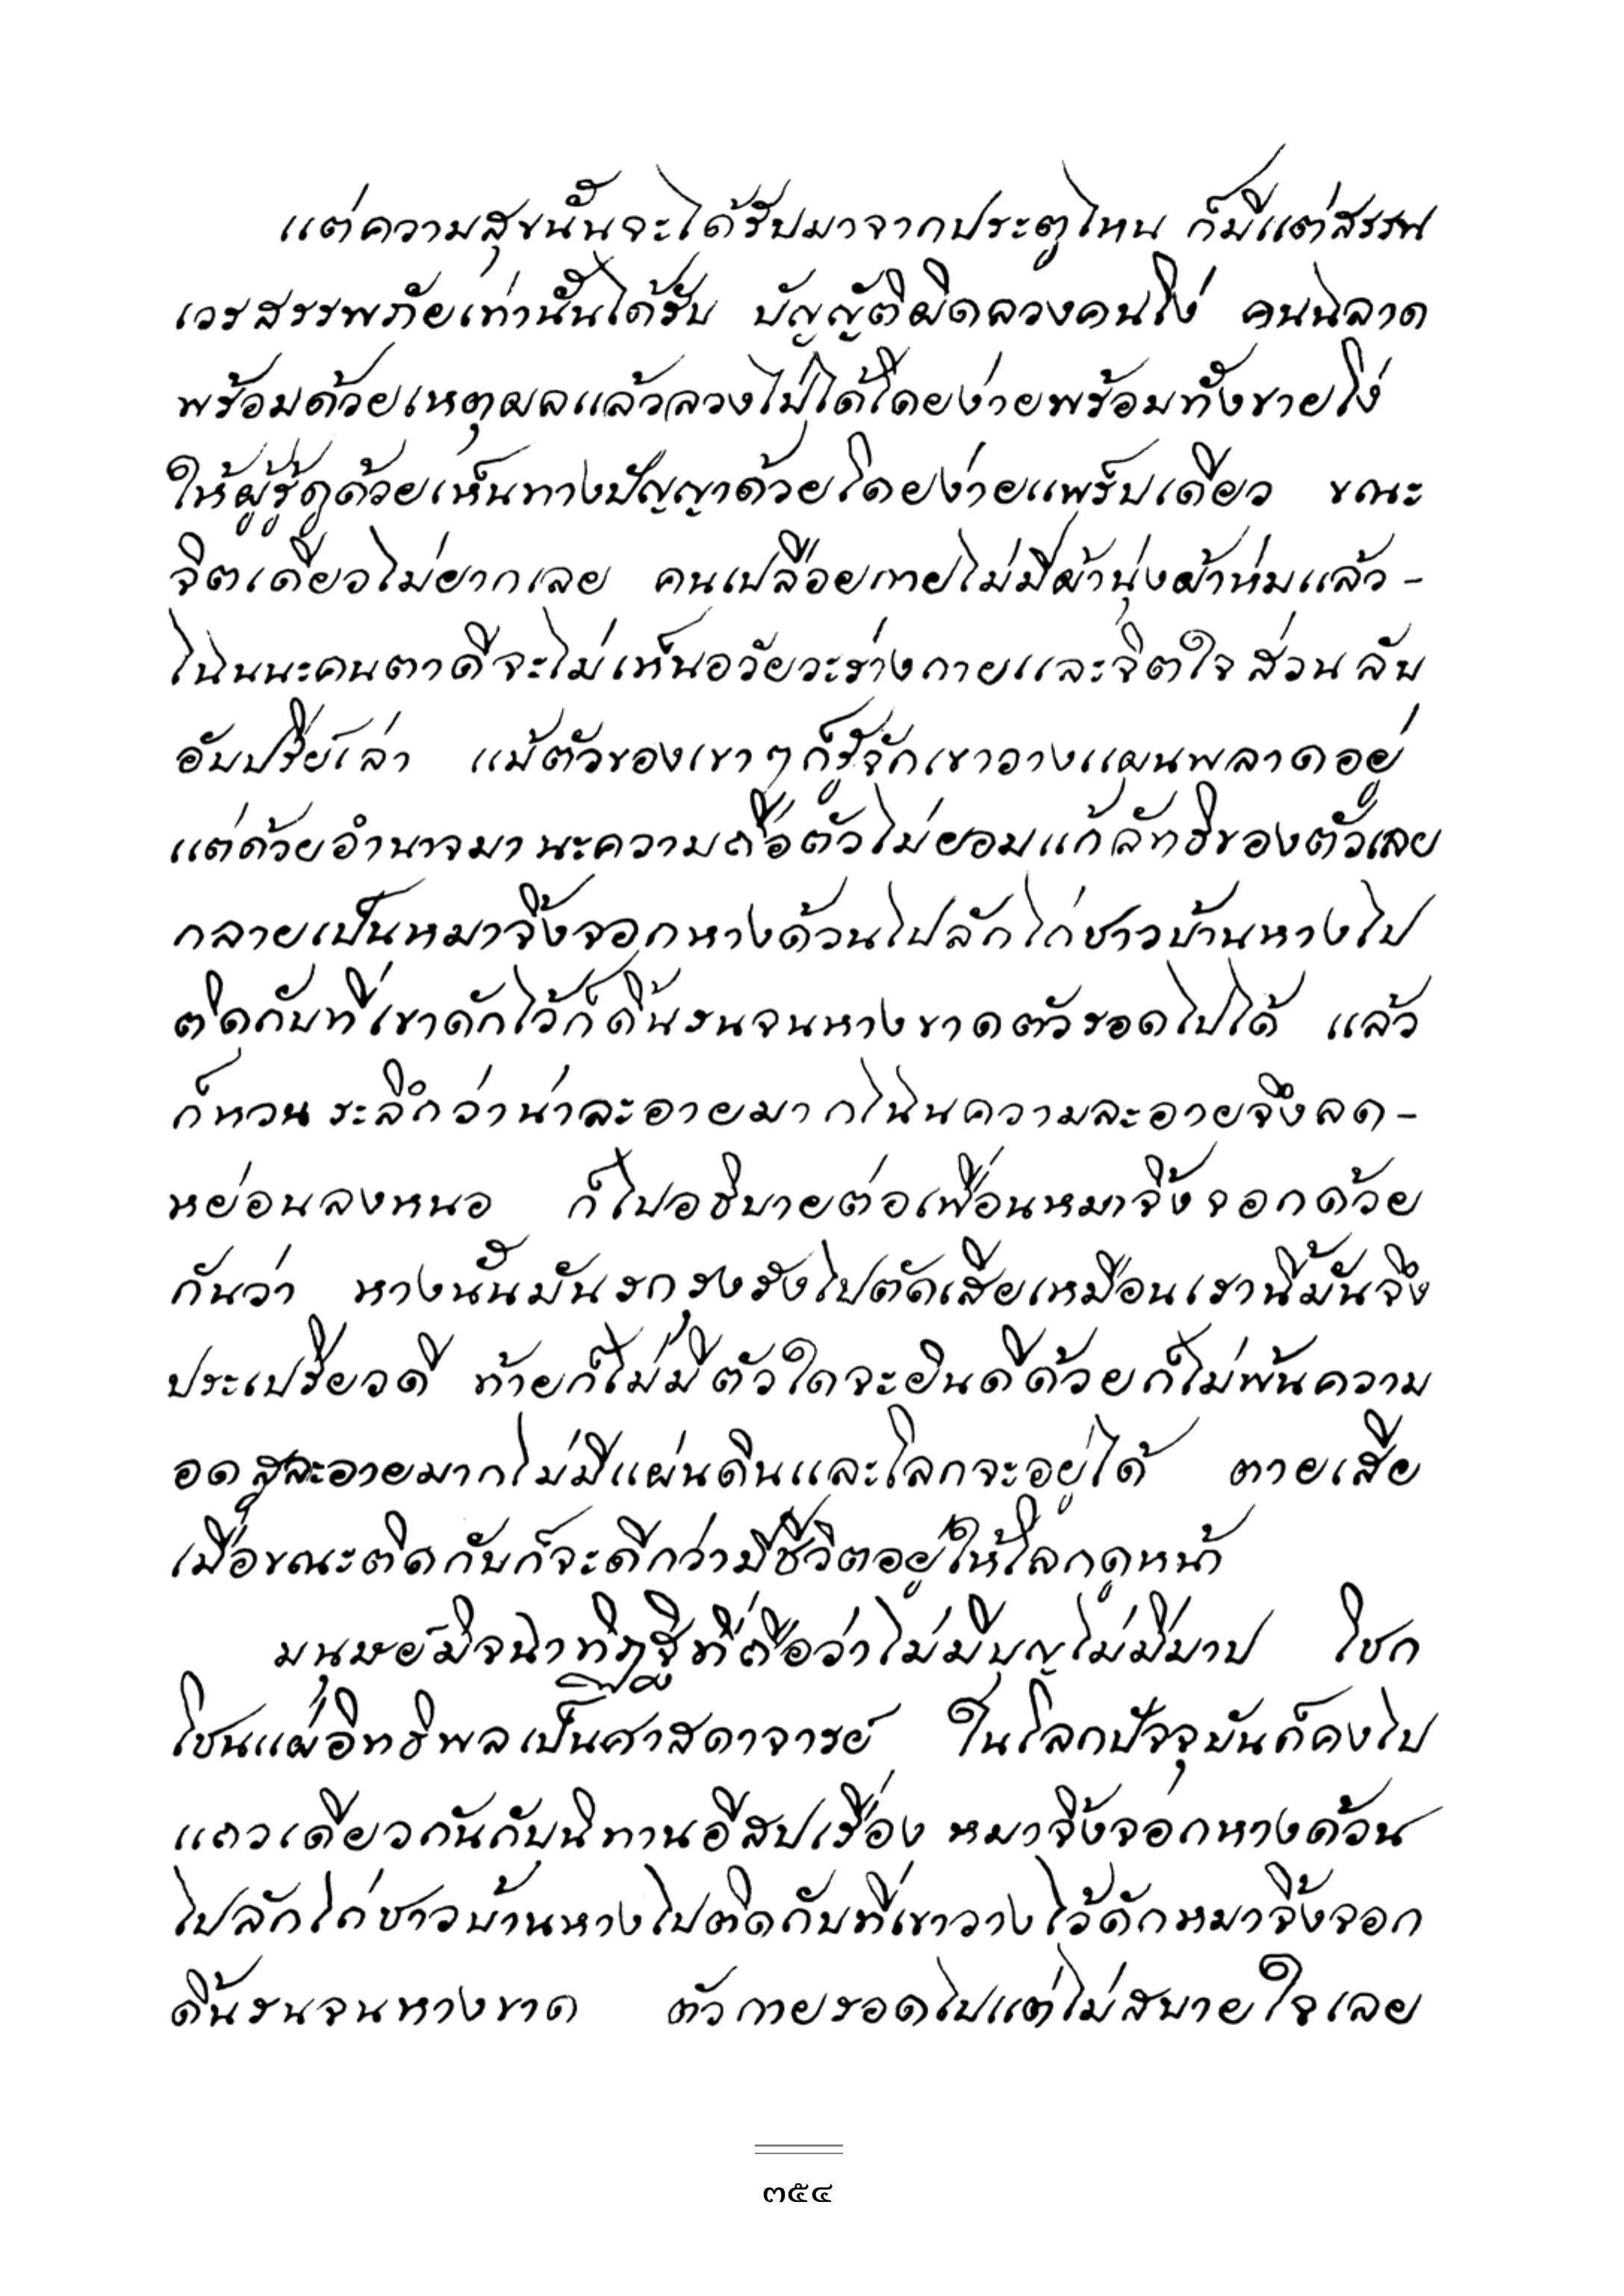 แต่ความสุขนั้นจะได้รับมาจากประตูไหน ก็มีแต่สรรพ
เวรสรรพภัยเท่านั้นได้รับ บัญญัติผิดลวงคนโง่ คนฉลาด
พร้อมด้วยเหตุผลแล้วลวงไม่ได้โดยง่ายพร้อมทั้งขายโง่
ให้ผู้รู้ดูด้วยเห็นทางปัญญาด้วยโดยง่ายแพร็บเดียว ขณะ
จิตเดียวไม่ยากเลย คนเปลือยกายไม่มีผ้านุ่งผ้าห่มแล้ว -
ไฉนนะคนตาดีจะไม่เห็นอวัยวะร่างกายและจิตใจส่วนลับ
อับปรีย์เล่า แม้ตัวของเขาๆก็รู้จักเขาวางแผนพลาดอยู่
แต่ด้วยอำนาจมานะความถือตัวไม่ยอมแก้ลัทธิของตัวเลย
กลายเป็นหมาจิ้งจอกหางด้วนไปลักไก่ชาวบ้านหางไป
ติดกับที่เขาดักไว้ก็ดิ้นรนจนหางขาดตัวรอดไปได้ แล้ว
ก็หวนระลึกว่าน่าละอายมากไฉนความละอายจึงลด -
หย่อนลงหนอ ก็ไปอธิบายต่อเพื่อนหมาจิ้งจอกด้วย
กันว่า หางนั้นมันรกรุงรังไปตัดเสียเหมือนเรานี้มันจึง
ประเปรียวดี ท้ายก็ไม่มีตัวใดจะยินดีด้วยก็ไม่พ้นความ
อดสูละอายมากไม่มีแผ่นดินและโลกจะอยู่ได้ ตายเสีย
เมื่อขณะติดกับก็จะดีกว่ามีชีวิตอยู่ให้โลกดูหน้า
มนุษย์มิจฉาทิฏฐิที่ถือว่าไม่มีบุญไม่มีบาป โชก
โชนแผ่อิทธิพลเป็นศาสดาจารย์ ในโลกปัจจุบันก็คงไป
แถวเดียวกันกับนิทานอีสปเรื่อง หมาจิ้งจอกหางด้วน
ไปลักไก่ชาวบ้านหางไปติดกับที่เขาวางไว้ดักหมาจิ้งจอก
ดิ้นรนจนหางขาด ตัวกายรอดไปแต่ไม่สบายใจเลย
๓๕๔